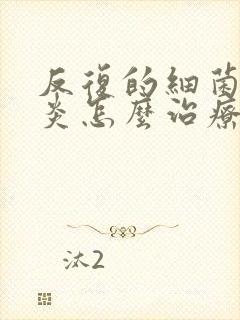 反復的細菌
炎怎麼治療
汰2